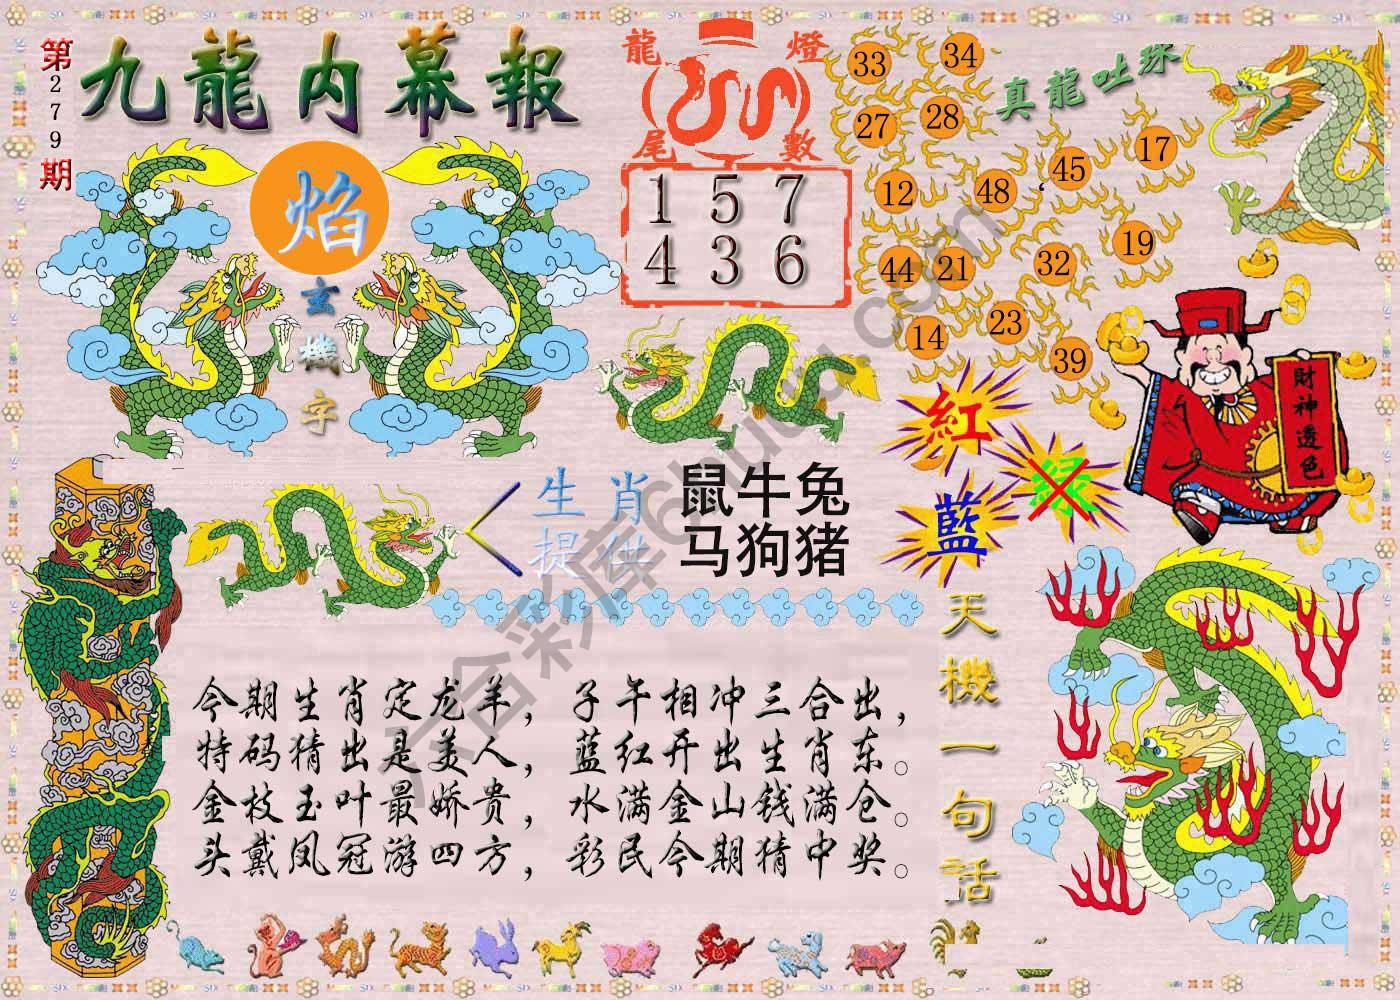 第279期
九龍内幕報
焰
玄機字
龍燈尾數
1 5 7
4 3 6
真龍吐珠
33
34
27
28
12
48
45
17
44
21
32
19
14
23
39
紅
綠
藍
財神透色
生肖
提供
鼠牛兔
马狗猪
今期生肖定龙羊，子午相冲三合出，
特码猜出是美人，蓝红开出生肖东。
金枝玉叶最娇贵，水满金山钱满仓。
头戴凤冠游四方，彩民今期猜中奖。
天機一句話
六合彩库6huuu.com